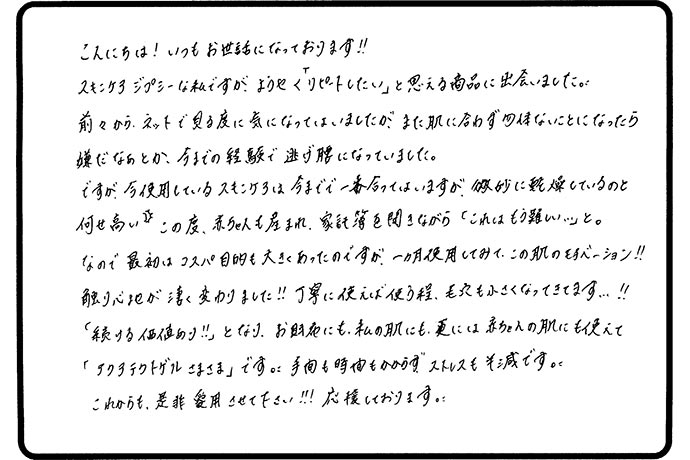 こんにちは!いつもお世話になっております!!
スキンケアジプシーな私ですが、ようやく「リピートしたい」と思える商品に出会いました。
前々から、ネットで見る度に気になってはいましたが、また肌に合わず勿体ないことになったら
嫌だなぁとか、今までの経験で逃げ腰になっていました。
ですが、今使用しているスキンケアは今までで一番合ってはいますが、微妙に乾燥しているのと
何せ高い この度、赤ちゃんも産まれ、家計簿を開きながら「これはもう難しい…」と。
なので最初はコスパ目的も大きくあったのですが、一ヵ月使用してみて、この肌のモチベーション!!
触り心地が凄く変わりました!!丁寧に使えば使う程、毛穴も小さくなってきてます…!!
「続ける価値あり!!」となり、お財布にも、私の肌にも、更には赤ちゃんの肌にも使えて
「アクアテクトゲルさまさま」です。手間も時間もかからずストレスも半減です。
これからも、是非愛用させて下さい!!!応援しております。